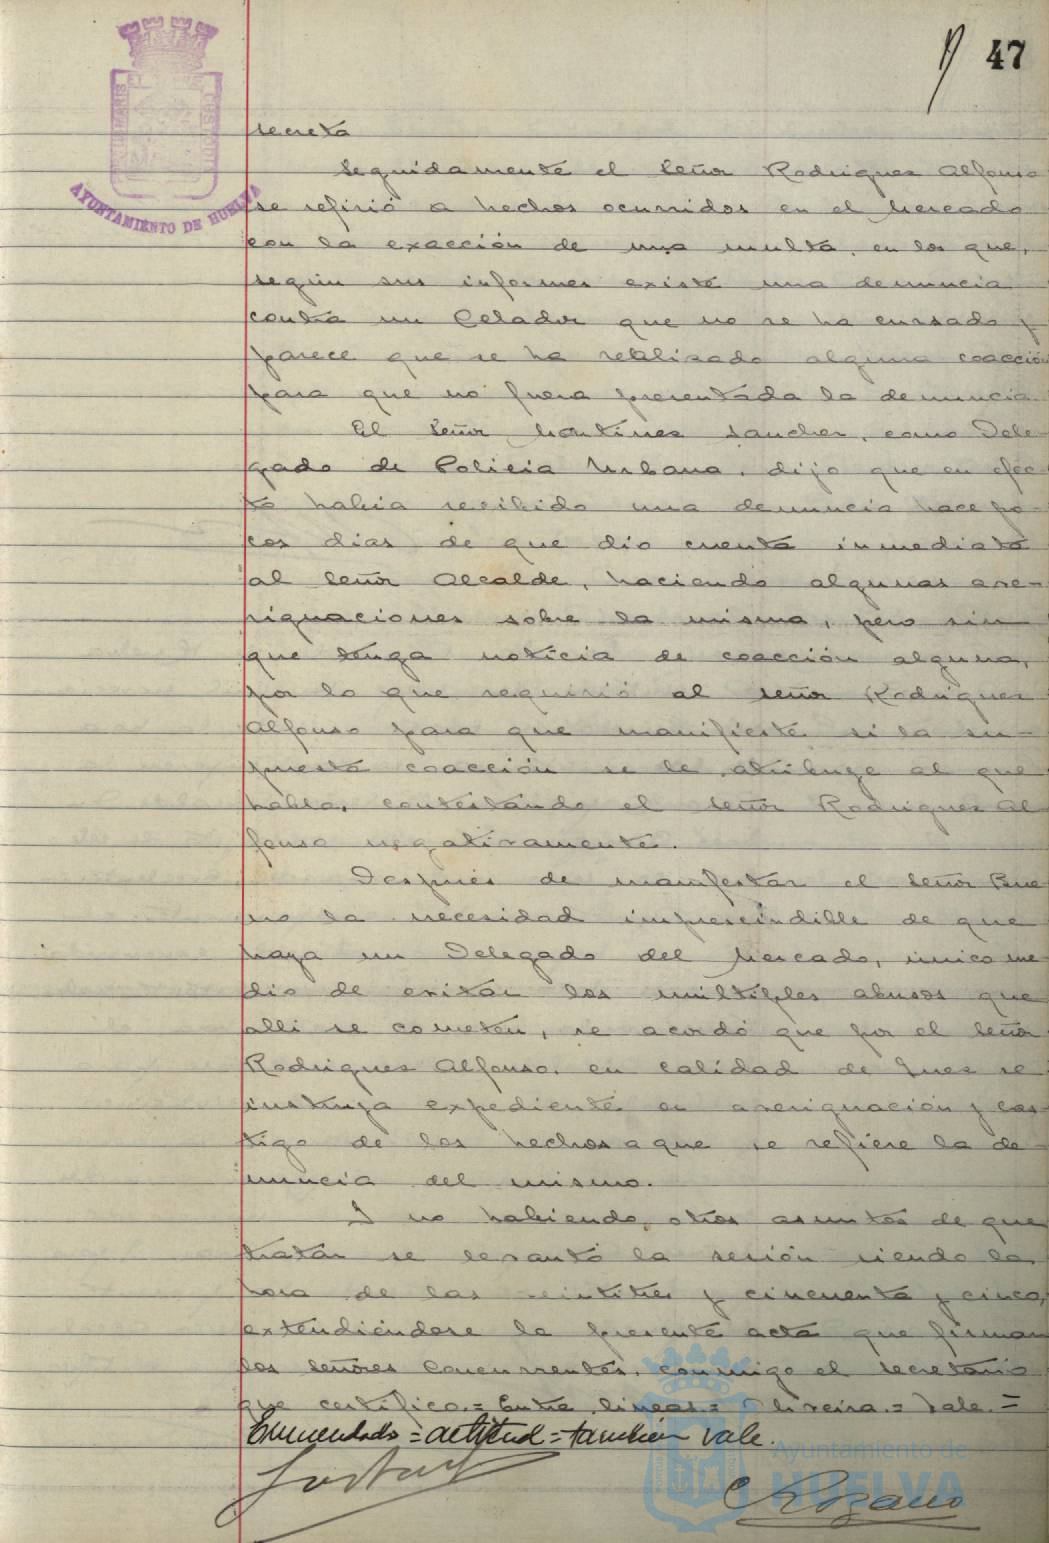 47
AYUNTAMIENTO DE HUELVA
secreta
Seguidamente el Señor Rodriguez Alfonso
se refirió a hechos ocurridos en el Mercado
con la exacción de una multa, en los que,
según sus informes existe una denuncia
contra un Celador que no se ha cursado y
parece que se ha realizado alguna coacción
para que no fuera presentada la denuncia.
El Señor Martinez Sanchez, como Dele-
gado de Policia Urbana, dijo que en efec-
to habia recibido una denuncia hace po-
cos dias de que dio cuenta inmediata
al Señor Alcalde, haciendo algunas ave-
riguaciones sobre la misma, pero sin
que tenga noticia de coacción alguna,
por lo que requirió al Señor Rodriguez
Alfonso para que manifieste si la su-
puesta coacción se le atribuye al que
habla, contestando el Señor Rodriguez Al
fonso negativamente.
Después de manifestar el Señor
la necesidad imprescindible de que
haya un Delegado del Mercado, unico me
dio de evitar los multiples abusos que
alli se cometen, se acordó que por el Señor
Rodriguez Alfonso, en calidad de Juez se
instruya expediente en averiguación y cas-
tigo de los hechos a que se refiere la de-
nuncia del mismo.
Y no habiendo otros asuntos de que
tratar se levantó la sesión siendo la
hora de las veintitres y cincuenta y cinco,
extendiéndose la presente acta que firman
los Señores Concurrentes, conmigo el Secretario
que certifico.= Entre lineas= Oliveira.= Vale.=
Enmendado = actitud = también vale.
Ayuntamiento de
HUELVA